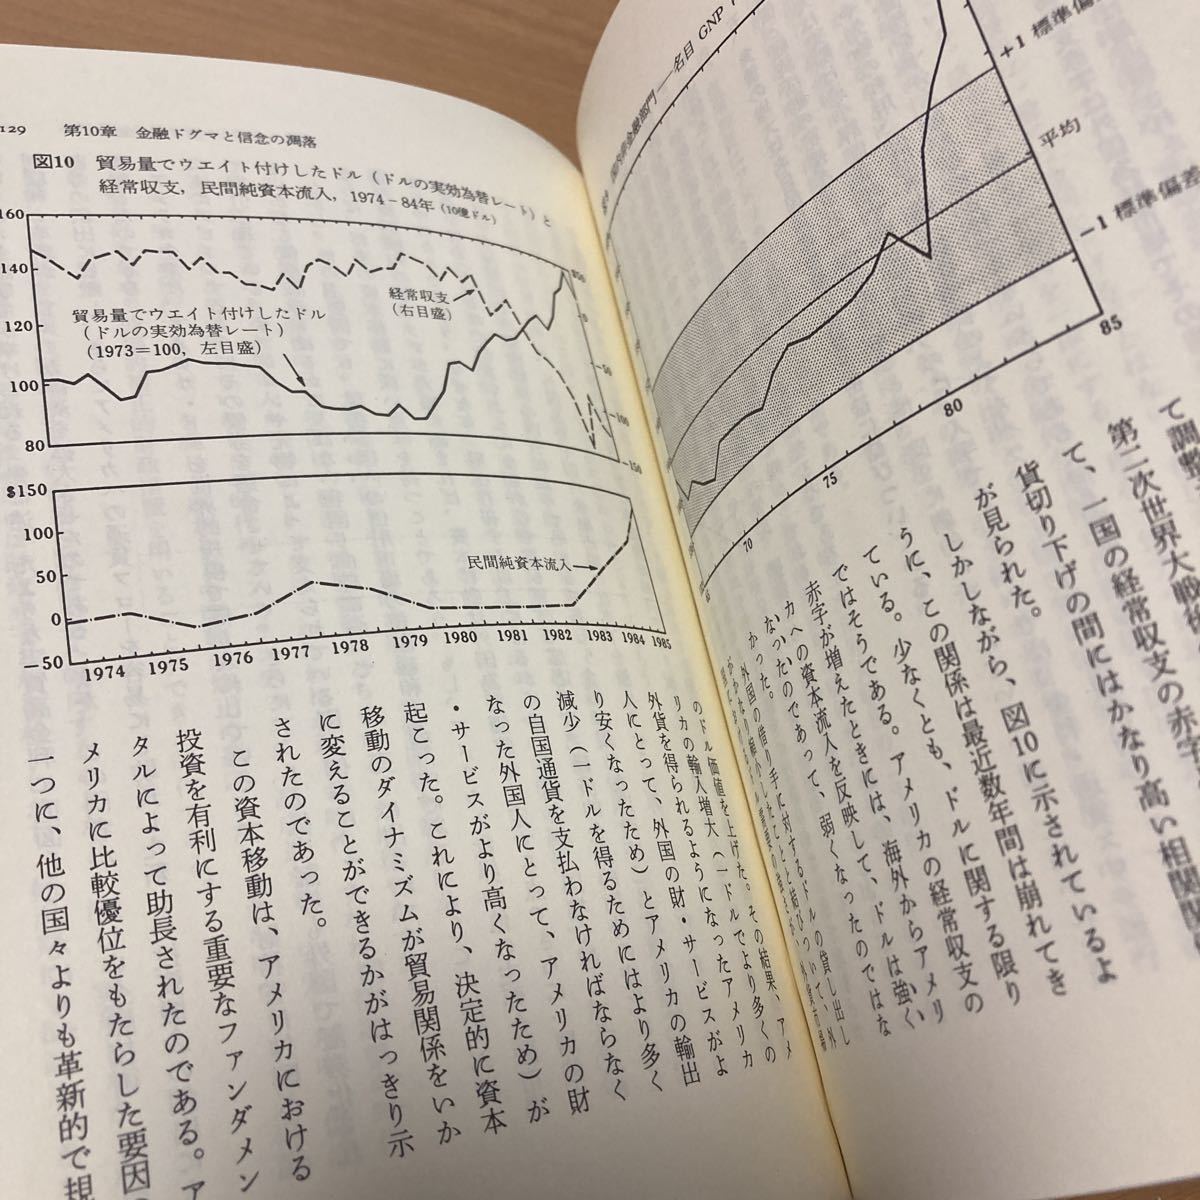 国内非金融部門——名目 GNP
+1 標準偏差
平均
-1 標準偏差
70
75
80
85
て調整
第二次世界大戦後
て、一国の経常収支の赤字
貨切り下げの間にはかなり高い相関関係
が見られた。
しかしながら、図10に示されているよ
うに、この関係は最近数年間は崩れてき
ている。少なくとも、ドルに関する限り
ではそうである。アメリカの経常収支の
赤字が増えたときには、海外からアメリ
カへの資本流入を反映して、ドルは強く
なったのであって、弱くなったのではな
かった。
外国の借り手に対するドルの貸し出し
129 第10章 金融ドグマと信念の凋落
図10 貿易量でウエイト付けしたドル(ドルの実効為替レート)と
経常収支,民間純資本流入,1974-84年(10億ドル)
160
140
120
100
80
$50
0
-50
-100
-150
経常収支
(右目盛)
貿易量でウエイト付けしたドル
(ドルの実効為替レート)
(1973=100,左目盛)
$150
100
50
0
-50
民間純資本流入
1974 1975 1976 1977 1978 1979 1980 1981 1982 1983 1984 1985
のドル価値を上げた。その結果、アメ
リカの輸入増大(一ドルでより多くの
外貨を得られるようになったアメリカ
人にとって、外国の財・サービスがよ
り安くなったため)とアメリカの輸出
減少(一ドルを得るためにはより多く
の自国通貨を支払わなければならなく
なった外国人にとって、アメリカの財
・サービスがより高くなったため)が
起こった。これにより、決定的に資本
移動のダイナミズムが貿易関係をいか
に変えることができるかがはっきり示
されたのであった。
この資本移動は、アメリカにおける
投資を有利にする重要なファンダメン
タルによって助長されたのである。ア
メリカに比較優位をもたらした要因の
一つに、他の国々よりも革新的で規